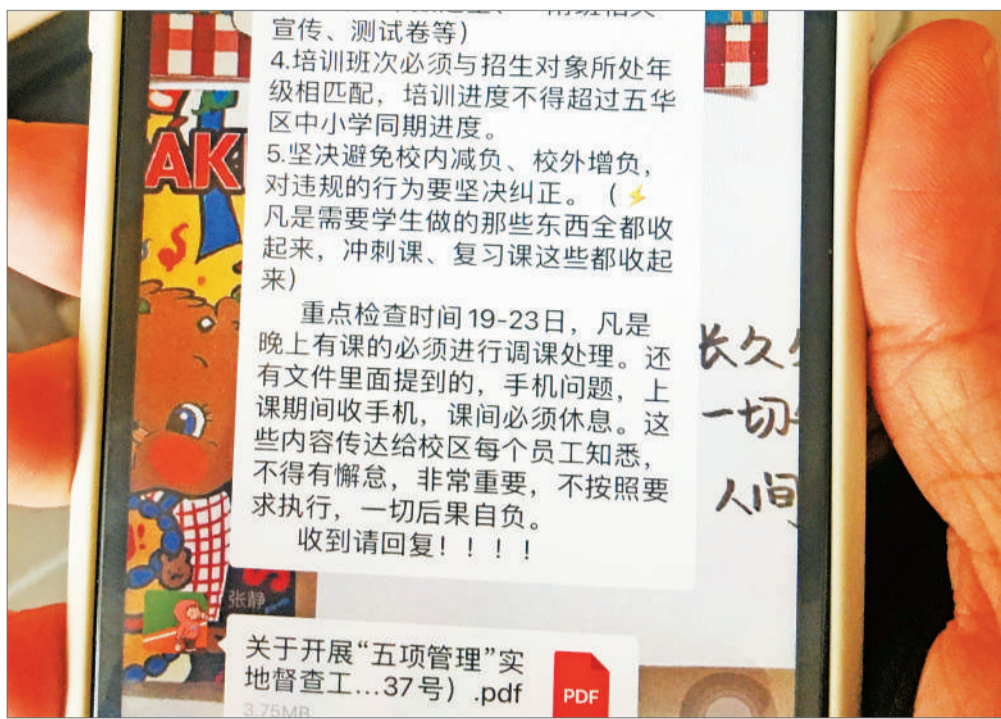 宣传、测试卷等)
4.培训班次必须与招生对象所处年
级相匹配，培训进度不得超过五华
区中小学同期进度。
5.坚决避免校内减负、校外增负，
对违规的行为要坚决纠正。（⚡
凡是需要学生做的那些东西全都收
起来，冲刺课、复习课这些都收起
来）
重点检查时间19-23日，凡是
晚上有课的必须进行调课处理。还
有文件里面提到的，手机问题，上
课期间收手机，课间必须休息。这
些内容传达给校区每个员工知悉，
不得有懈怠，非常重要，不按照要
求执行，一切后果自负。
收到请回复！！！！
AK
长久
一切
人间
张静
关于开展“五项管理”实
地督查工...37号）.pdf
3.75MB
PDF